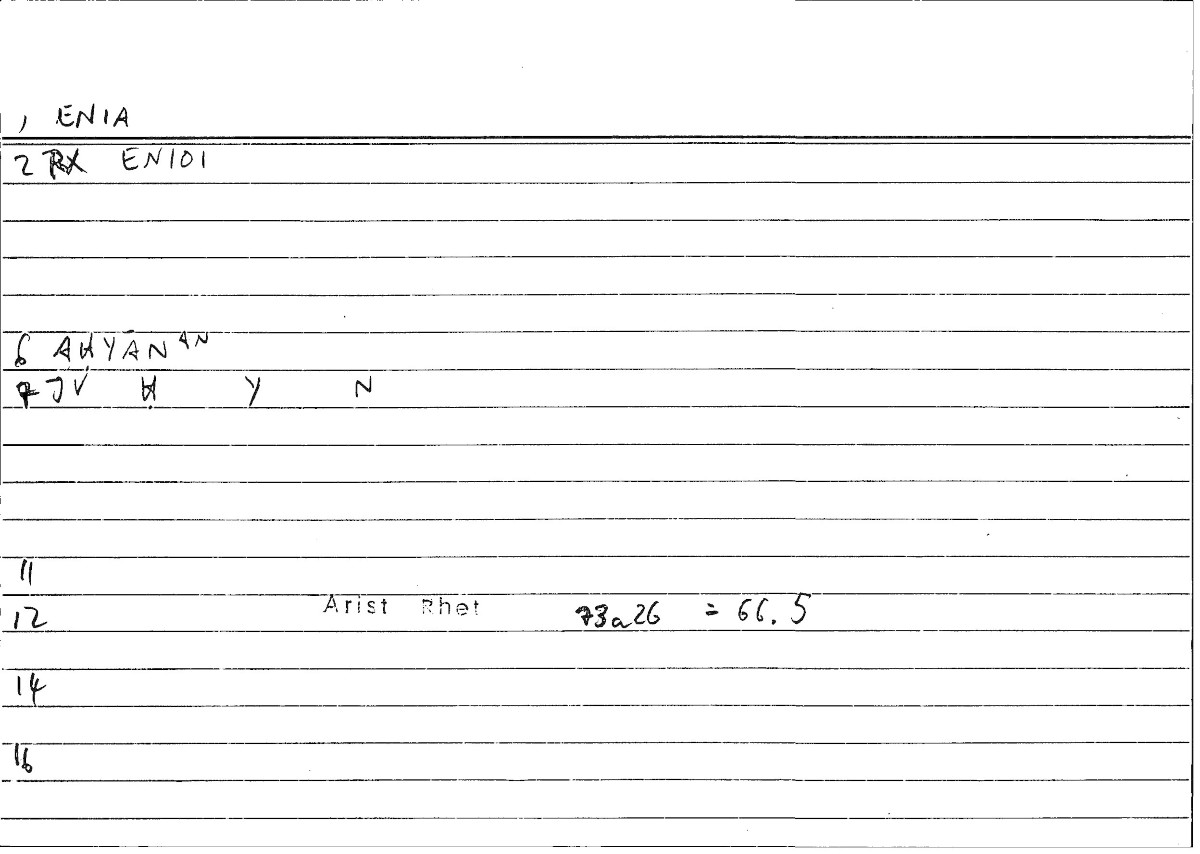 1 ENIA
2 RX ENIOI
6 AḤYĀNAN
7 JV Ḥ Y N
11
12 Arist Rhet 73a26 = 66.5
14
16